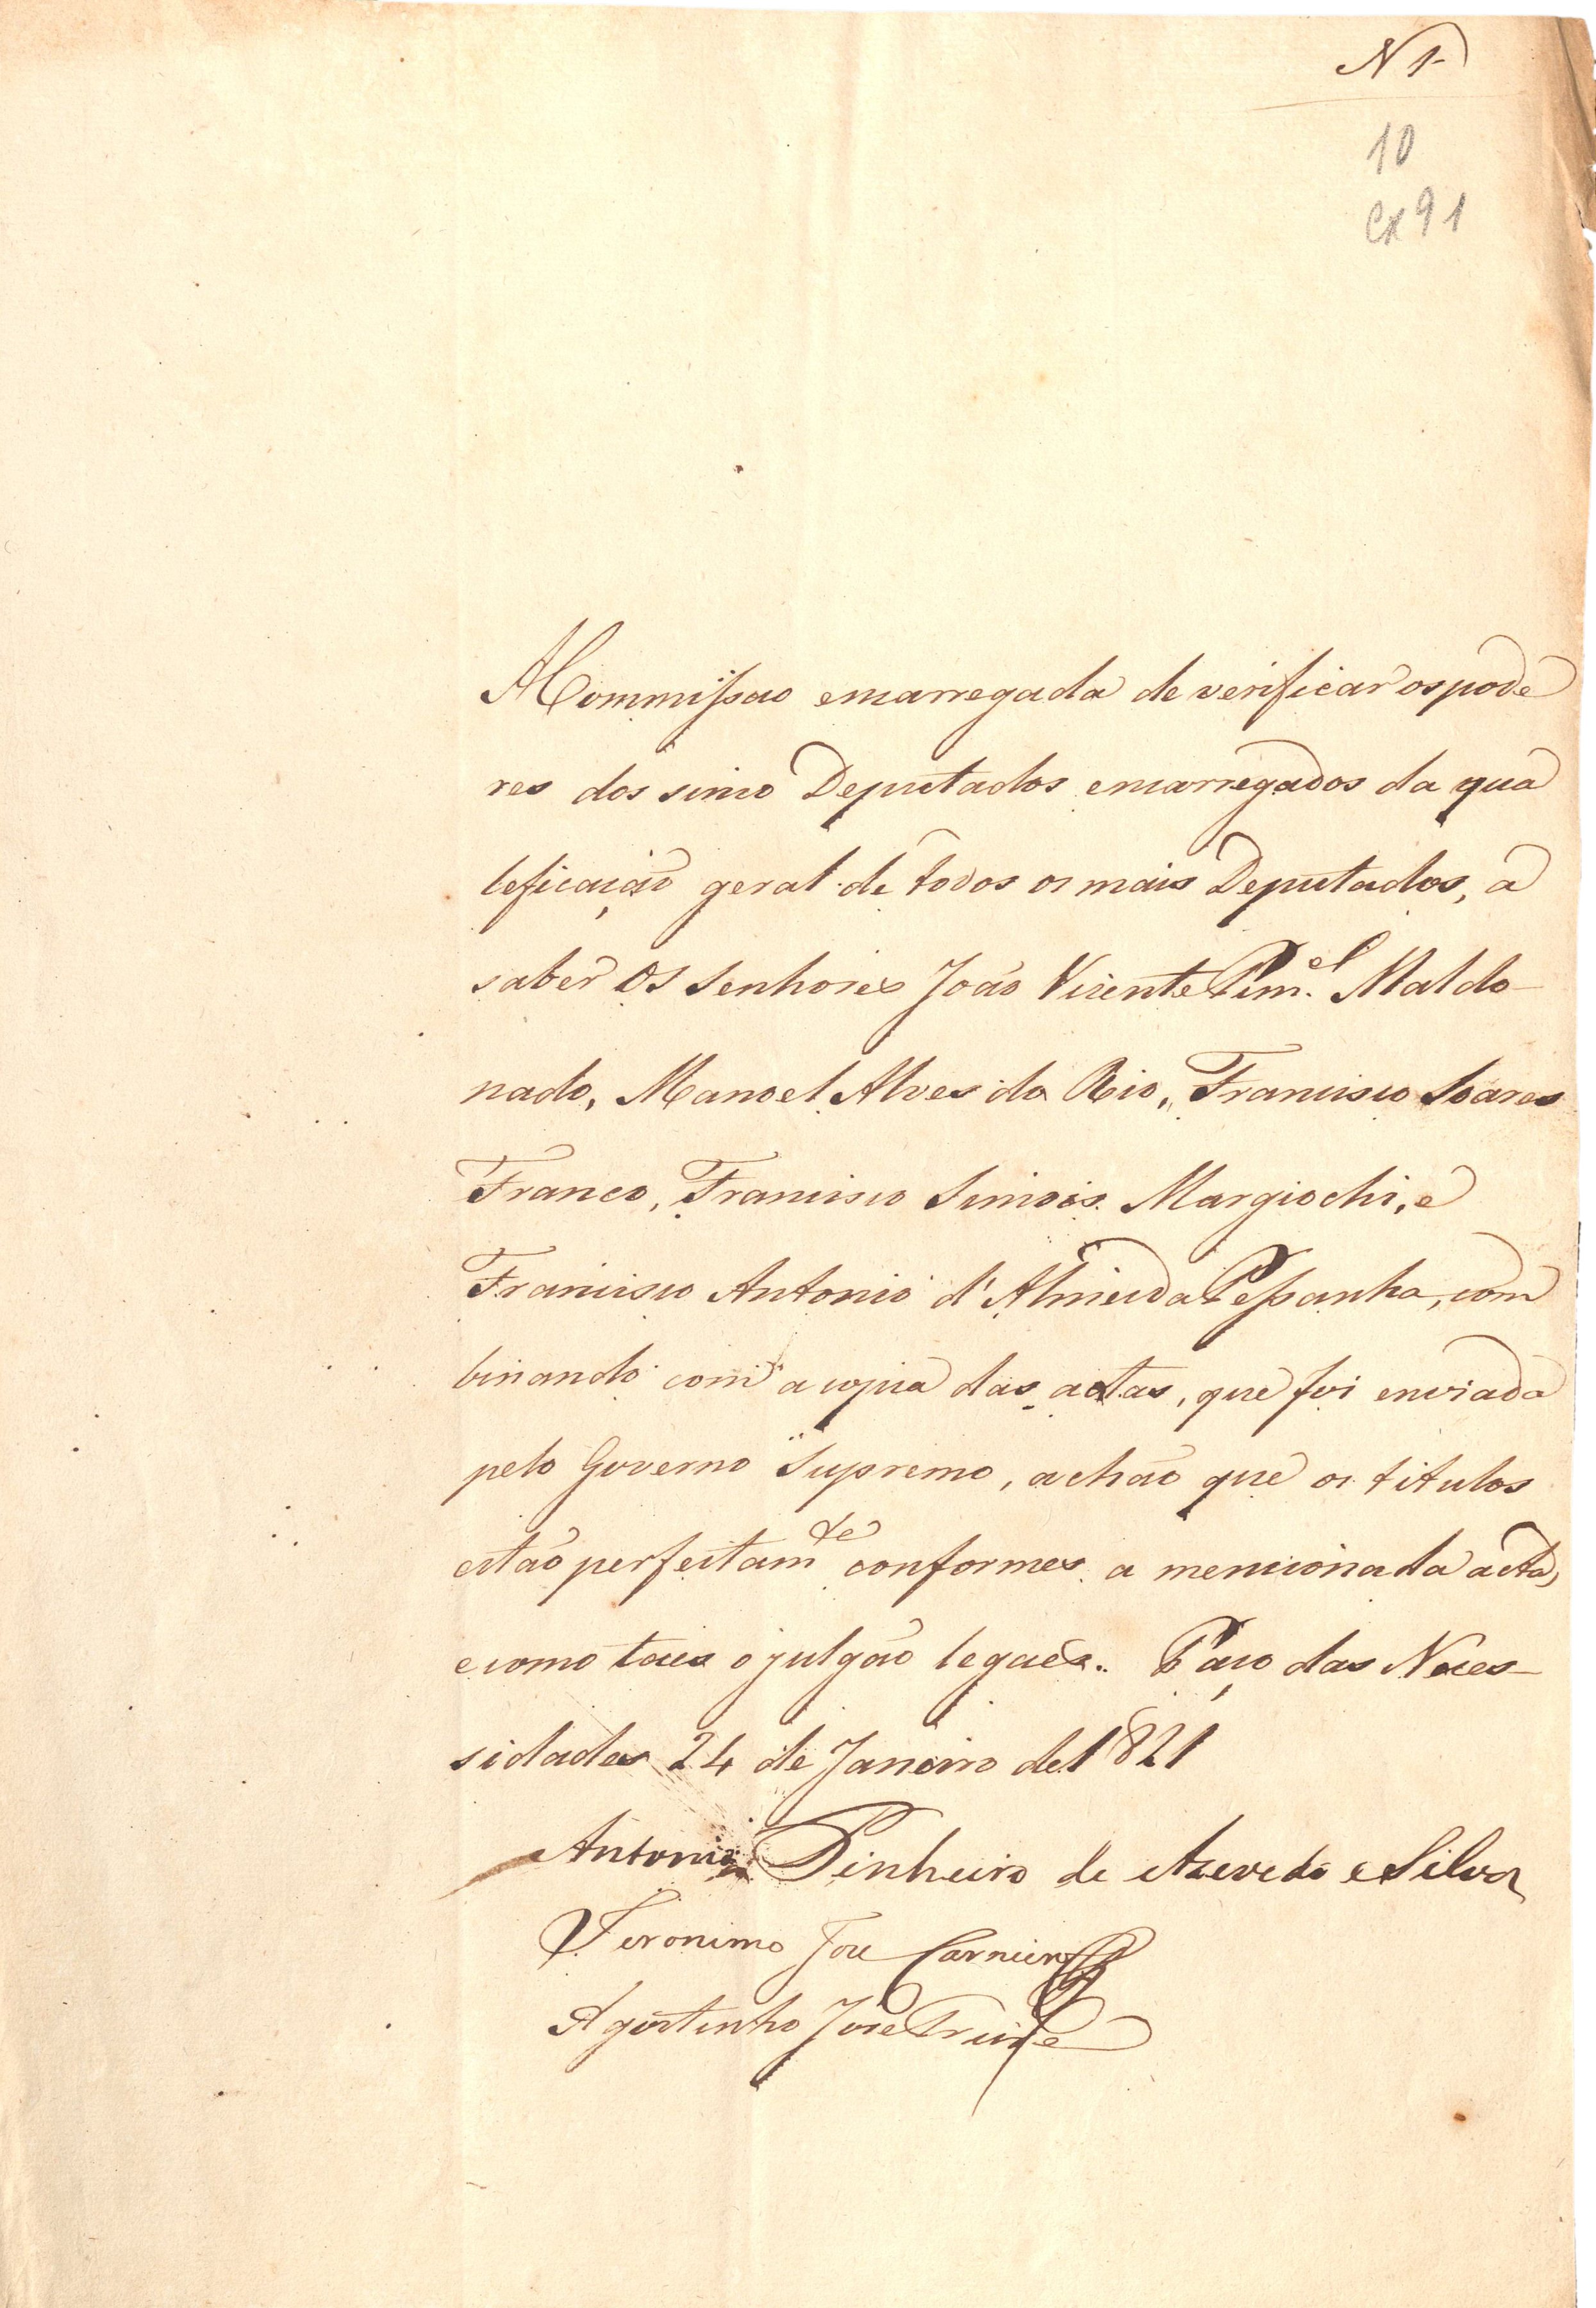 N 1
10
Cx 91
A Commissao encarregada de verificar os pode
res dos sinco Deputados encarregados da qua
leficação geral de todos os mais Deputados, a
saber Os Senhores João Vicente Pim.el Maldo-
nado, Manoel Alves do Rio, Francisco Soares
Franco, Francisco Simois Margiochi, e
Francisco Antonio d'Almeida Pessanha, com
binando com a copia das actas, que foi enviada
pelo Governo Supremo, achão que os titulos
estão perfeitam.te conformes a mencionada acta,
e como taes o julgão legaes. Paço das Neces-
sidades 24 de Janeiro de 1821
Antonio Pinheiro de Azevedo e Silva
Jeronimo Jose Carneiro
Agostinho Jose Freire